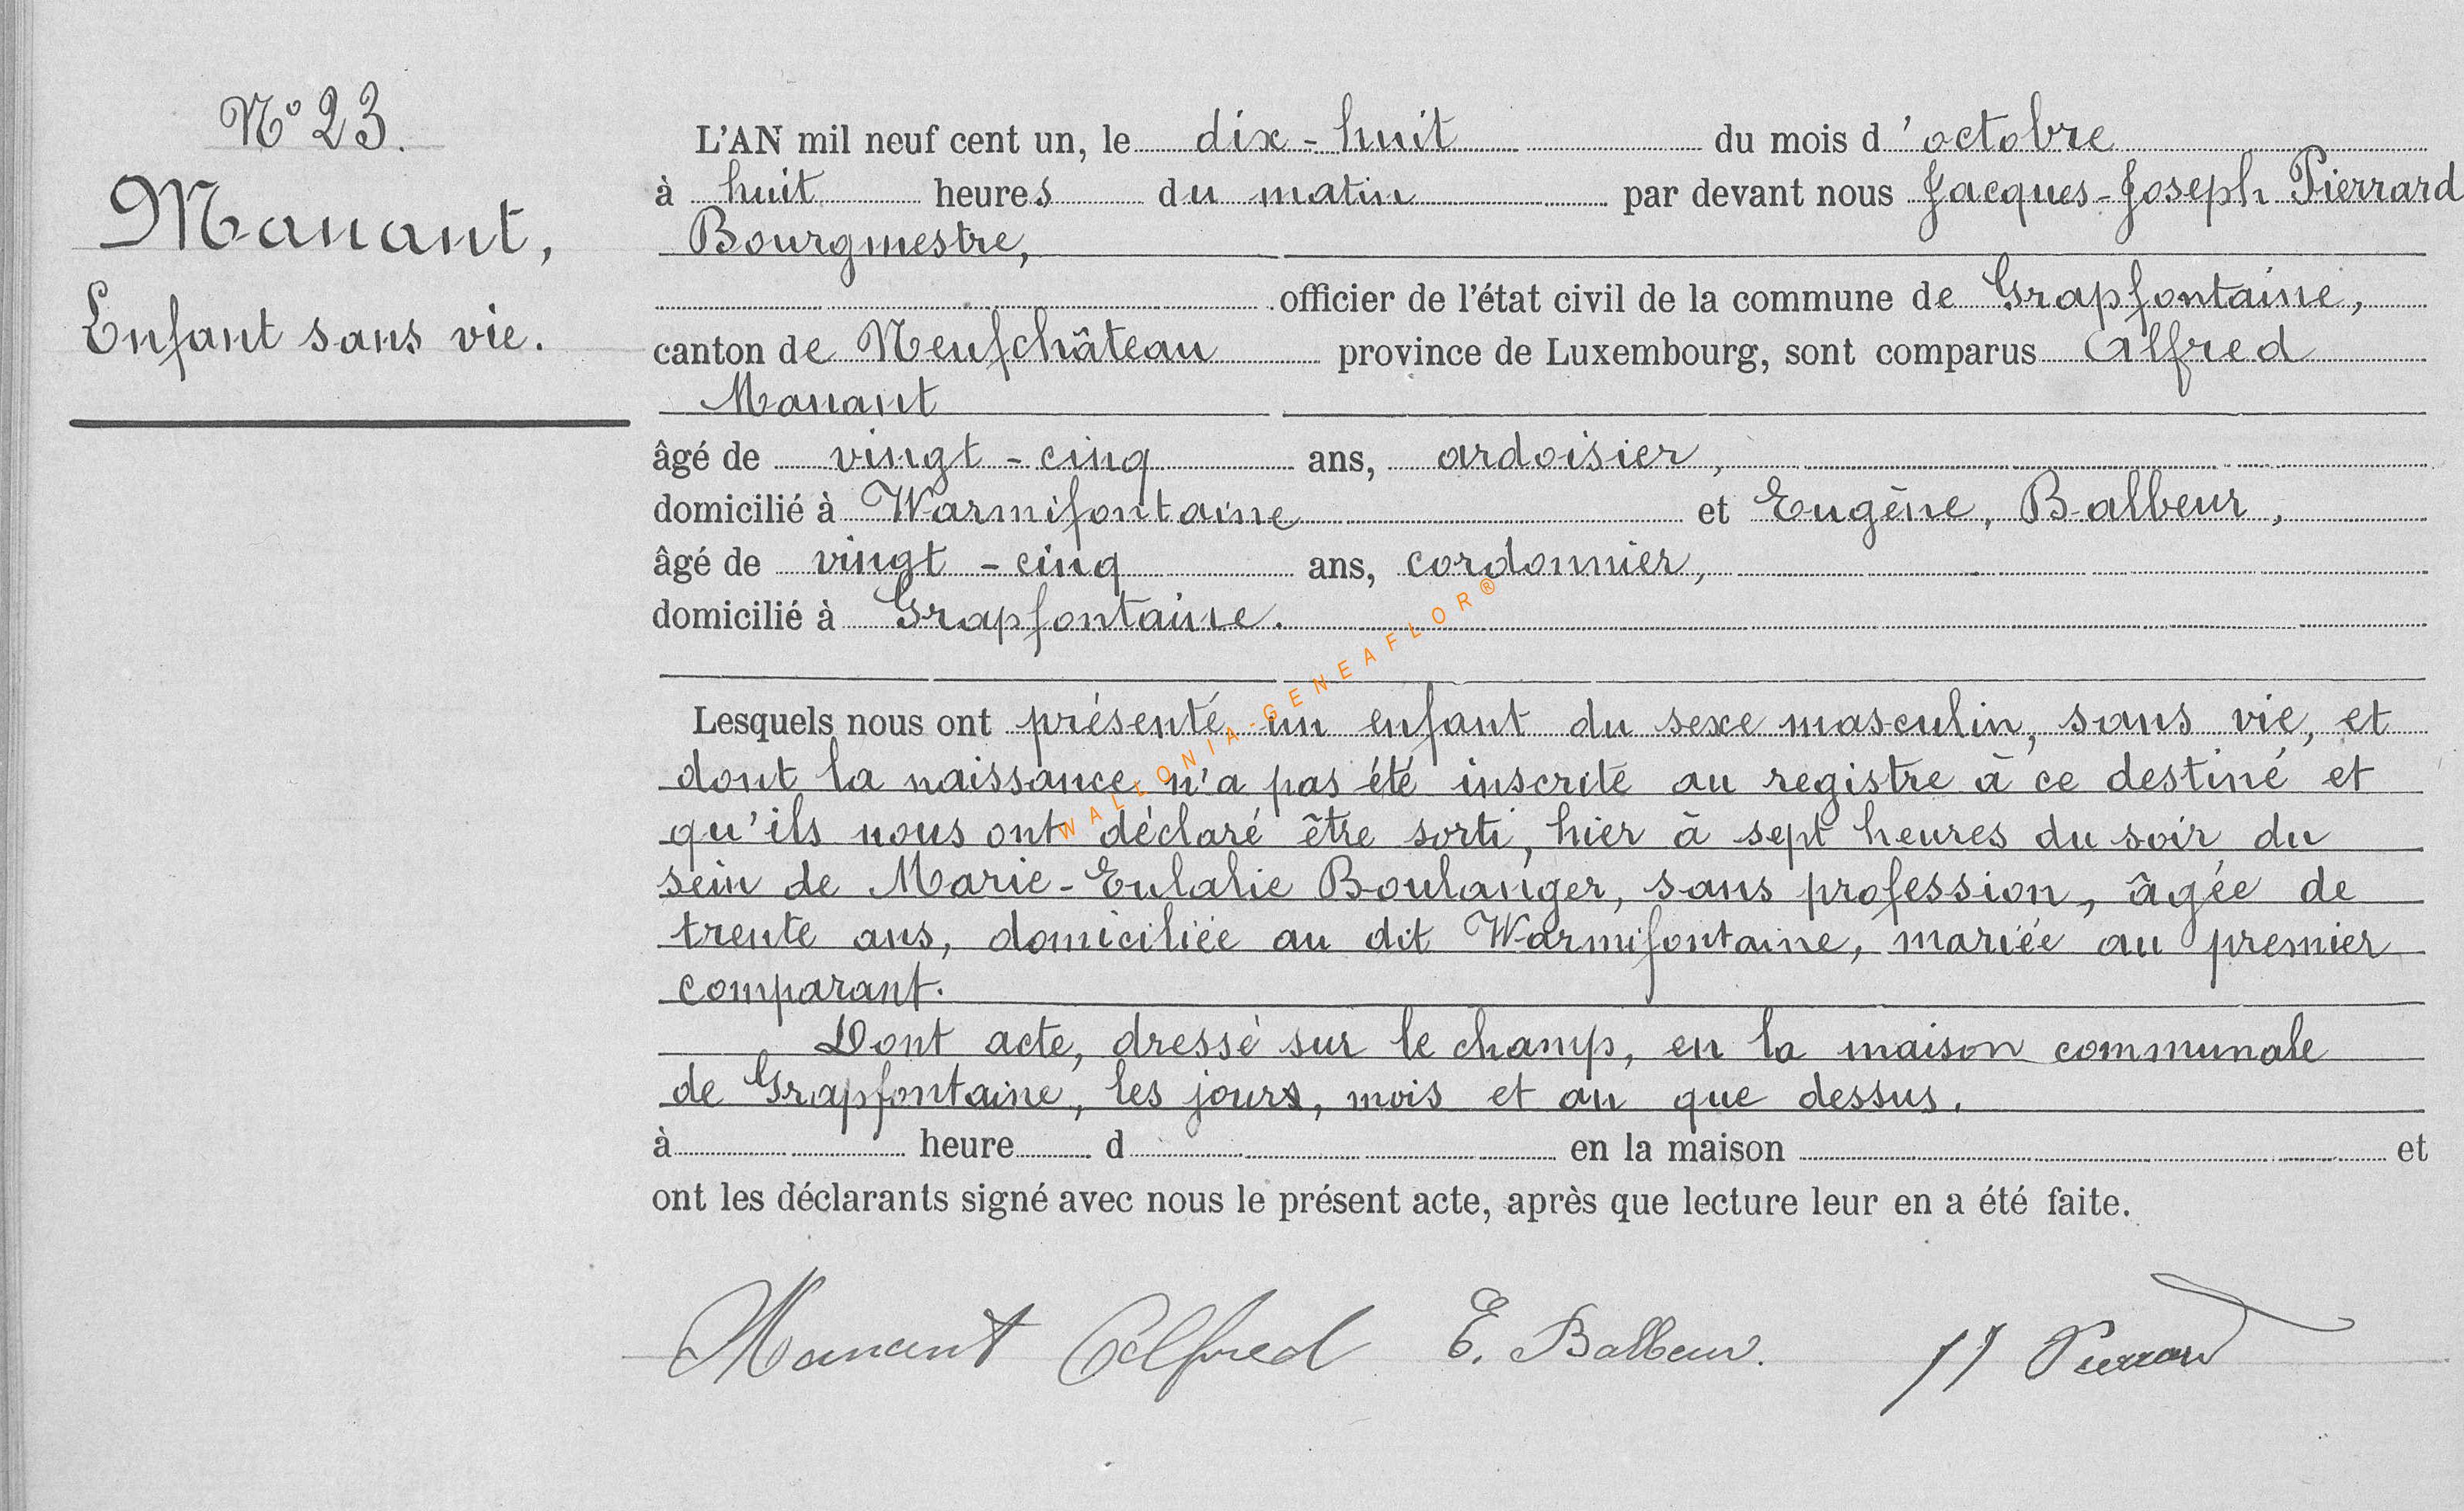 N° 23.
Manant,
Enfant sans vie.
L'AN mil neuf cent un, le dix-huit du mois d'octobre
à huit heures du matin par devant nous Jacques-Joseph Pierrard
Bourgmestre,
officier de l'état civil de la commune de Grapfontaine,
canton de Neufchâteau province de Luxembourg, sont comparus Alfred
Manant
âgé de vingt-cinq ans, ardoisier,
domicilié à Warmifontaine et Eugène, Balbeur,
âgé de vingt-cinq ans, cordonnier,
domicilié à Grapfontaine.
Lesquels nous ont présenté un enfant du sexe masculin, sans vie, et
dont la naissance n'a pas été inscrite au registre à ce destiné et
qu'ils nous ont déclaré être sorti, hier à sept heures du soir du
sein de Marie-Eulalie Boulanger, sans profession, âgée de
trente ans, domiciliée au dit Warmifontaine, mariée au premier
comparant.
Dont acte, dressé sur le champ, en la maison communale
de Grapfontaine, les jours, mois et an que dessus.
à heure d en la maison et
ont les déclarants signé avec nous le présent acte, après que lecture leur en a été faite.
Manant Alfred E. Balbeur. JJ Pierrard
WALLONIA-GENEAFLOR®